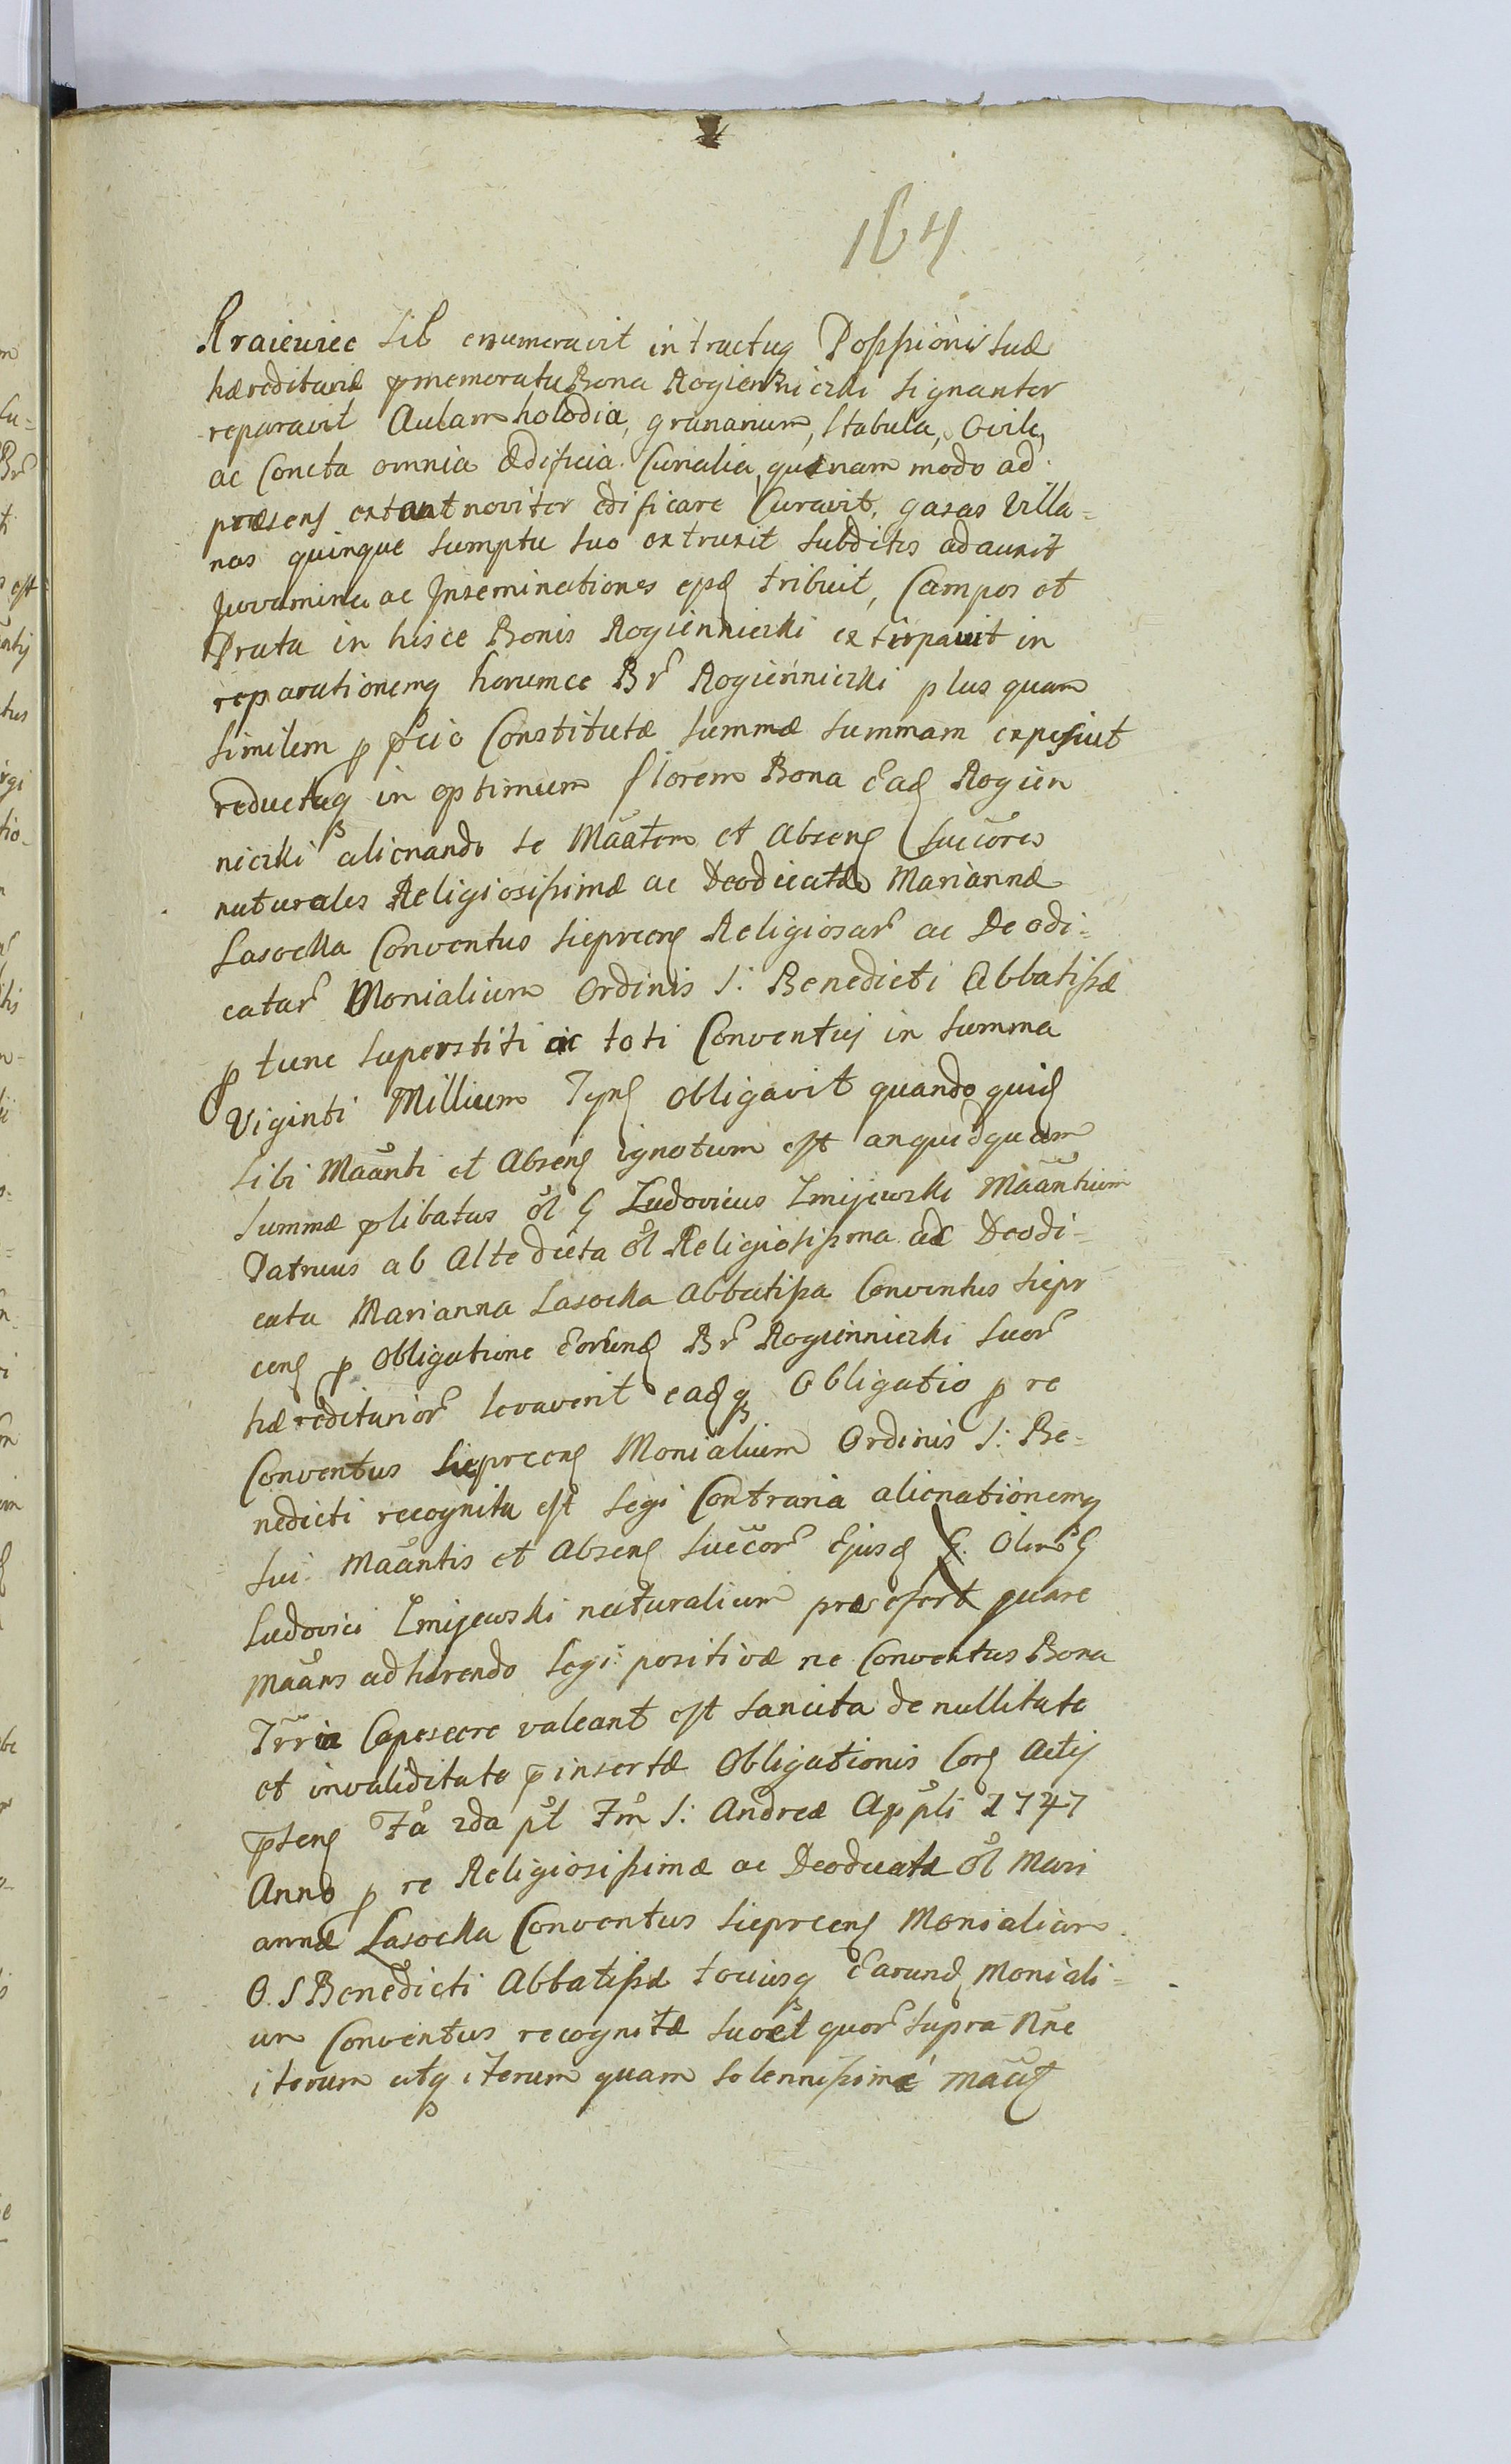 164
Kraiewiec sib enumeravit intractuq Possȩsioni suæ
hæreditariæ pmemorata Bona Rogienniczki signanter
reparavit Aulam holodia, granarium, stabula, Ovile,
ac Concta omnia Ædificia Curialia, quænam modo ad
præsens extant noviter ædificare Curavit, gazas Villa=
nas quinque sumptu suo extruxit subditis adauxit
Juvamina ac Inseminationes ejsd tribuit, Campos et
Prata in hisce Bonis Rogienniczki extirpavit in
reparationemq horumce Br Rogienniczki plus quam
similem p pcio Constitutæ summæ summam exposuit
reductaq in optimum florem Bona Ead Rogien
niczki alienando se Maãtem et Absens succores
naturales Religiosissimæ ac Deodicatæ Mariannæ
Lasocka Conventus Sieprcens Religiosar ac Deodi=
catar Monialium Ordinis S: Benedicti Abbatissæ
p tunc superstiti ac toti Conventuj in summa
Viginti Millium Tynf obligavit quando quid
sibi Maãnti et Absens ignotum est anquidquam
summæ plibatus ol G Ludovicus Zmijewski Maãntium
Patruus ab Alte dicta ol Religiosissma ac Deodi=
cata Marianna Lasocka Abbatissa Conventus Siepr
cens p Obligatione Eorund Br Rogienniczki suor
hæreditarior levaverit eadq Obligatio p re
Conventus Sieprcens Monialium Ordinis S: Be=
nedicti recognita est Legi Contraria alienationemq
sui Maãntis et Absens succor Ejusd G. Olim G
Ludovici Zmijewski naturalium præsefert quare
Maãns adhærendo Legi positivæ ne Conventus Bona
Trria Capescere valeant est sancita de nullitate
et invaliditate pinsertæ Obligationis Cor Actis
ptens Fa 2da pt Fm S: Andreæ Appli 1747
Anno p re Religiosissimæ ac Deodicatæ ol Mari
annæ Lasocka Conventus Sieprcens Monialium
O. S Benedicti Abbatissæ tociusq Earund Moniali=
um Conventus recognitæ quor supra Nne
iterum atq iterum quam solennissime